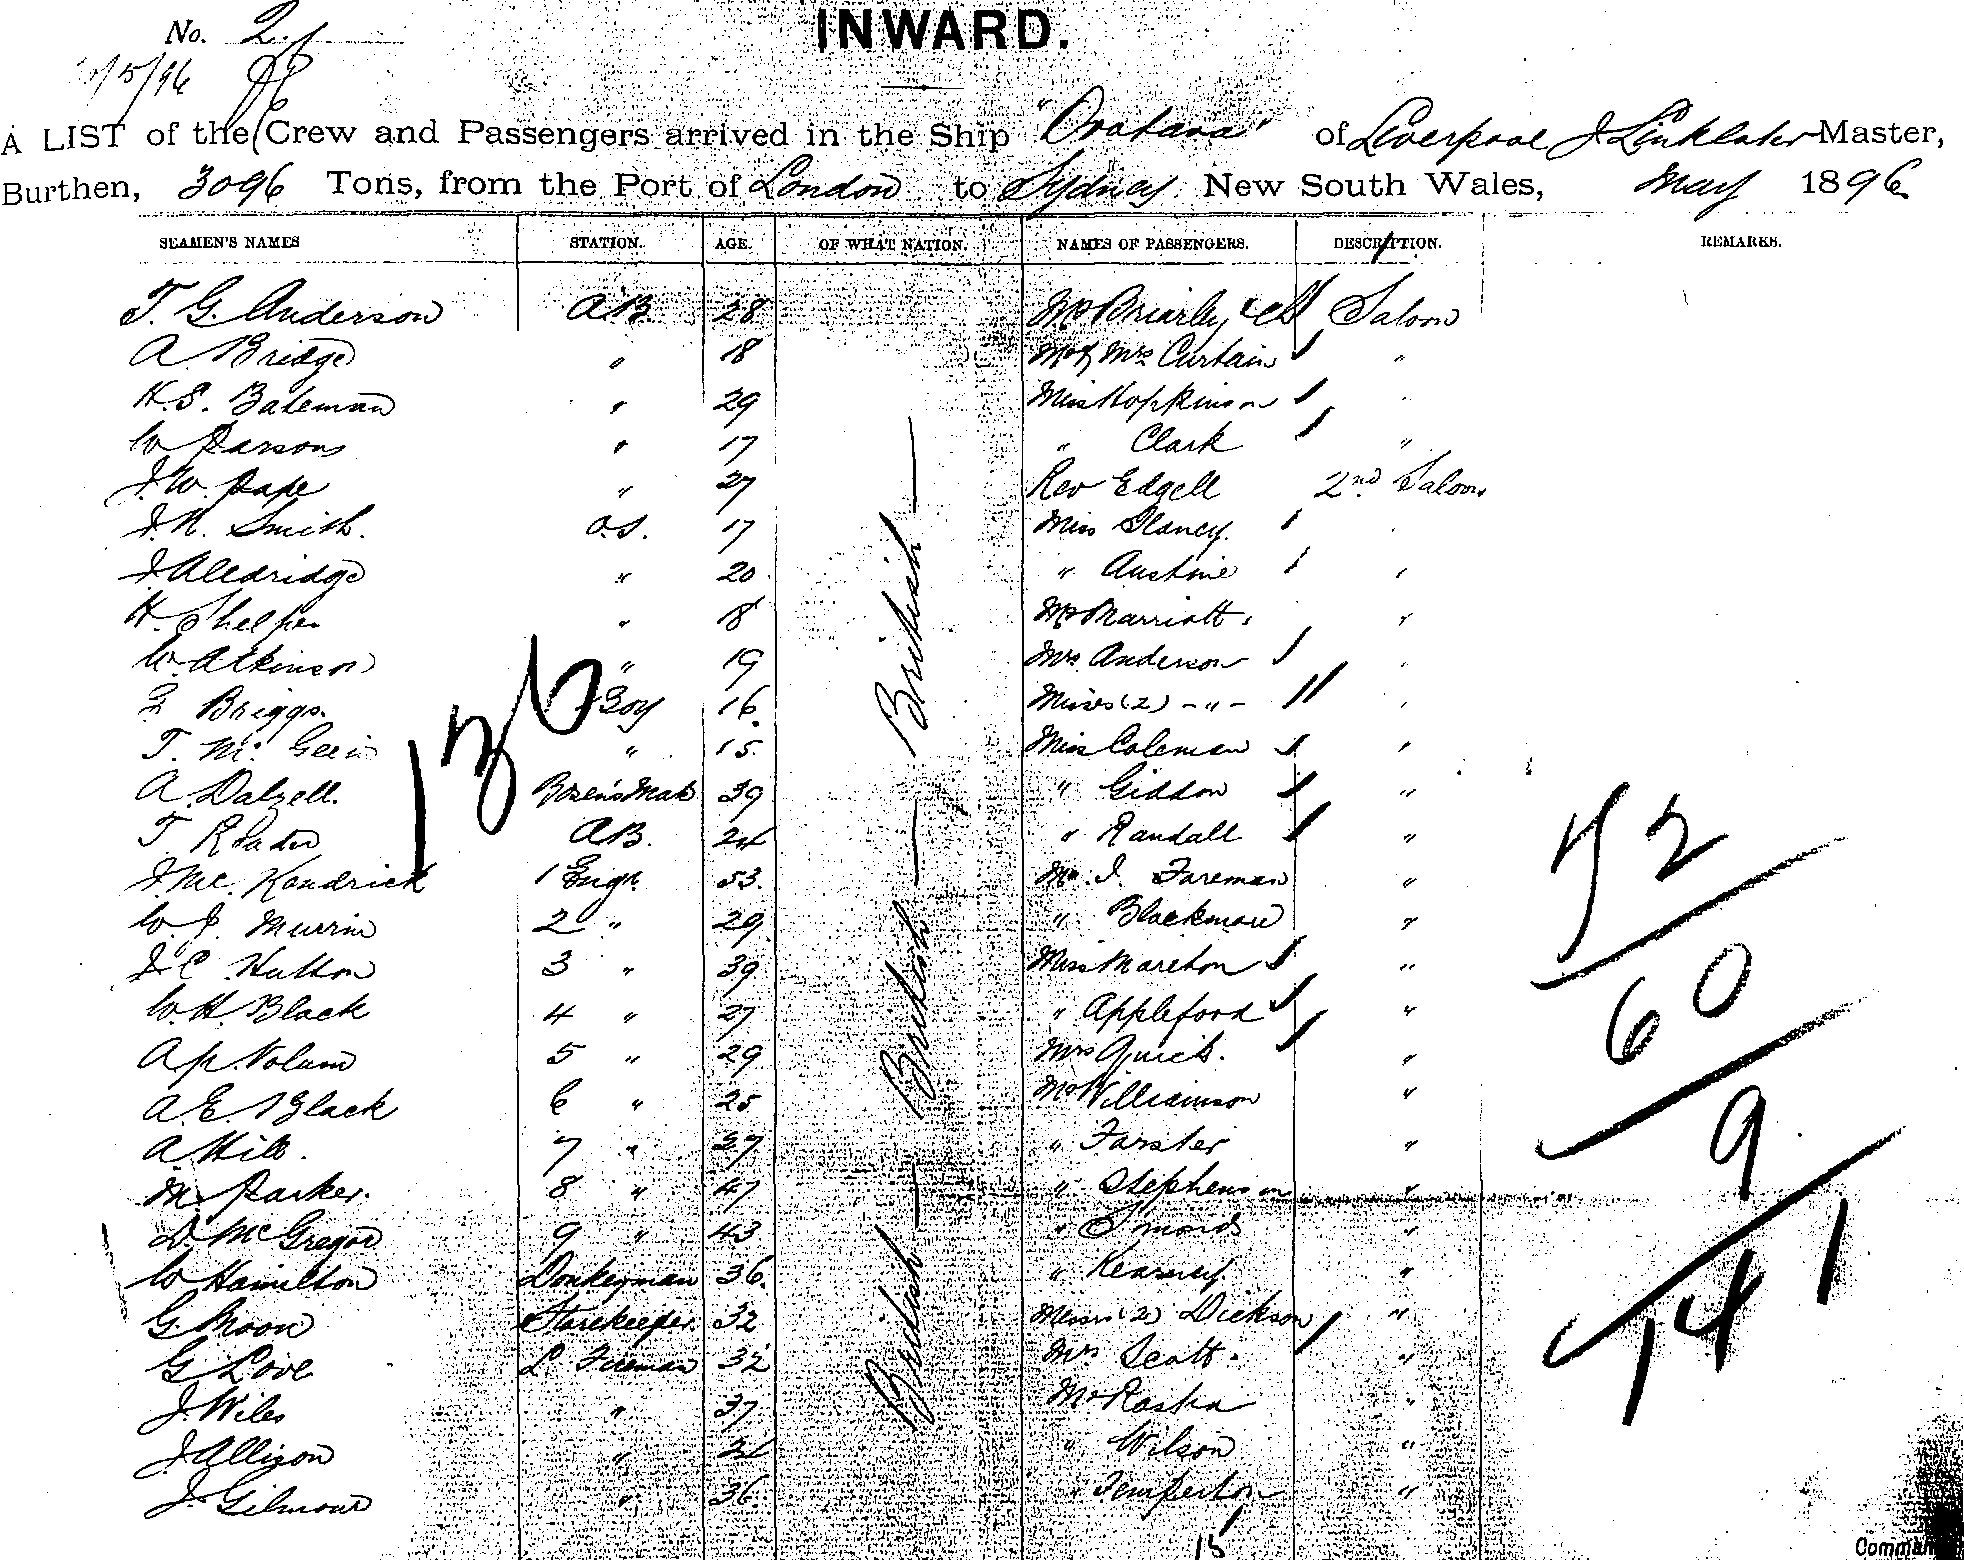 No. 2
5/96
INWARD.
A LIST of the Crew and Passengers arrived in the Ship "Orotava" of Liverpool J Linklater Master,
Burthen, 3096 Tons, from the Port of London to Sydney New South Wales, May 1896
SEAMEN'S NAMES STATION. AGE. OF WHAT NATION. NAMES OF PASSENGERS. DESCRIPTION. REMARKS.
T. G. Anderson A.B. 28 Mr Briarly Saloon
A Bridge " 18 Mr & Mrs Curtain "
H.S. Bateman " 29 Miss Hopkinson "
W Parsons " 17 " Clark "
J.W. Pape " 27 Rev Edgell 2nd Saloon
J.N. Smith. O.S. 17 Miss Glancy. "
J Alldridge " 20 " Austine "
H. Shelper " 18 Mr Marriott "
W. Atkinson " 19 Mrs Anderson "
Briggs. Boy 16. Misses (2) - " - "
T. Mc " 15. Miss Coleman "
A. Dalzell. Bosen's Mate 39 " Giddon "
T. A.B. 24 " Randall "
J Mc. Kendrick 1 Engr. 53. Mr. J. Foreman "
W. J. Murrin 2 " 29 " Blackmore "
J C Hutton 3 " 39 Miss Moreton "
W. H. Black 4 " 27 " Appleford "
A p. Nolan 5 " 29 Mrs Quick. "
A. E. Black 6 " 25 Mr Williamson "
A Hill. 7 " 27 " Forster "
M. Parker. 8 " 47 " Stephenson "
D McGregor 9 " 43 " Simonds "
W Hamilton Donkeyman 36. " Kearney. "
G. Moon Storekeeper. 32 (2) Dickson "
G Love L. Fireman 32 Mrs Scott. "
J. Wiles " 37 Mr "
J Allison " 34 " Wilson "
J. Gilmour " 36. " Temperton "
British — British — British —
136
72
60
9
141
15
Comman